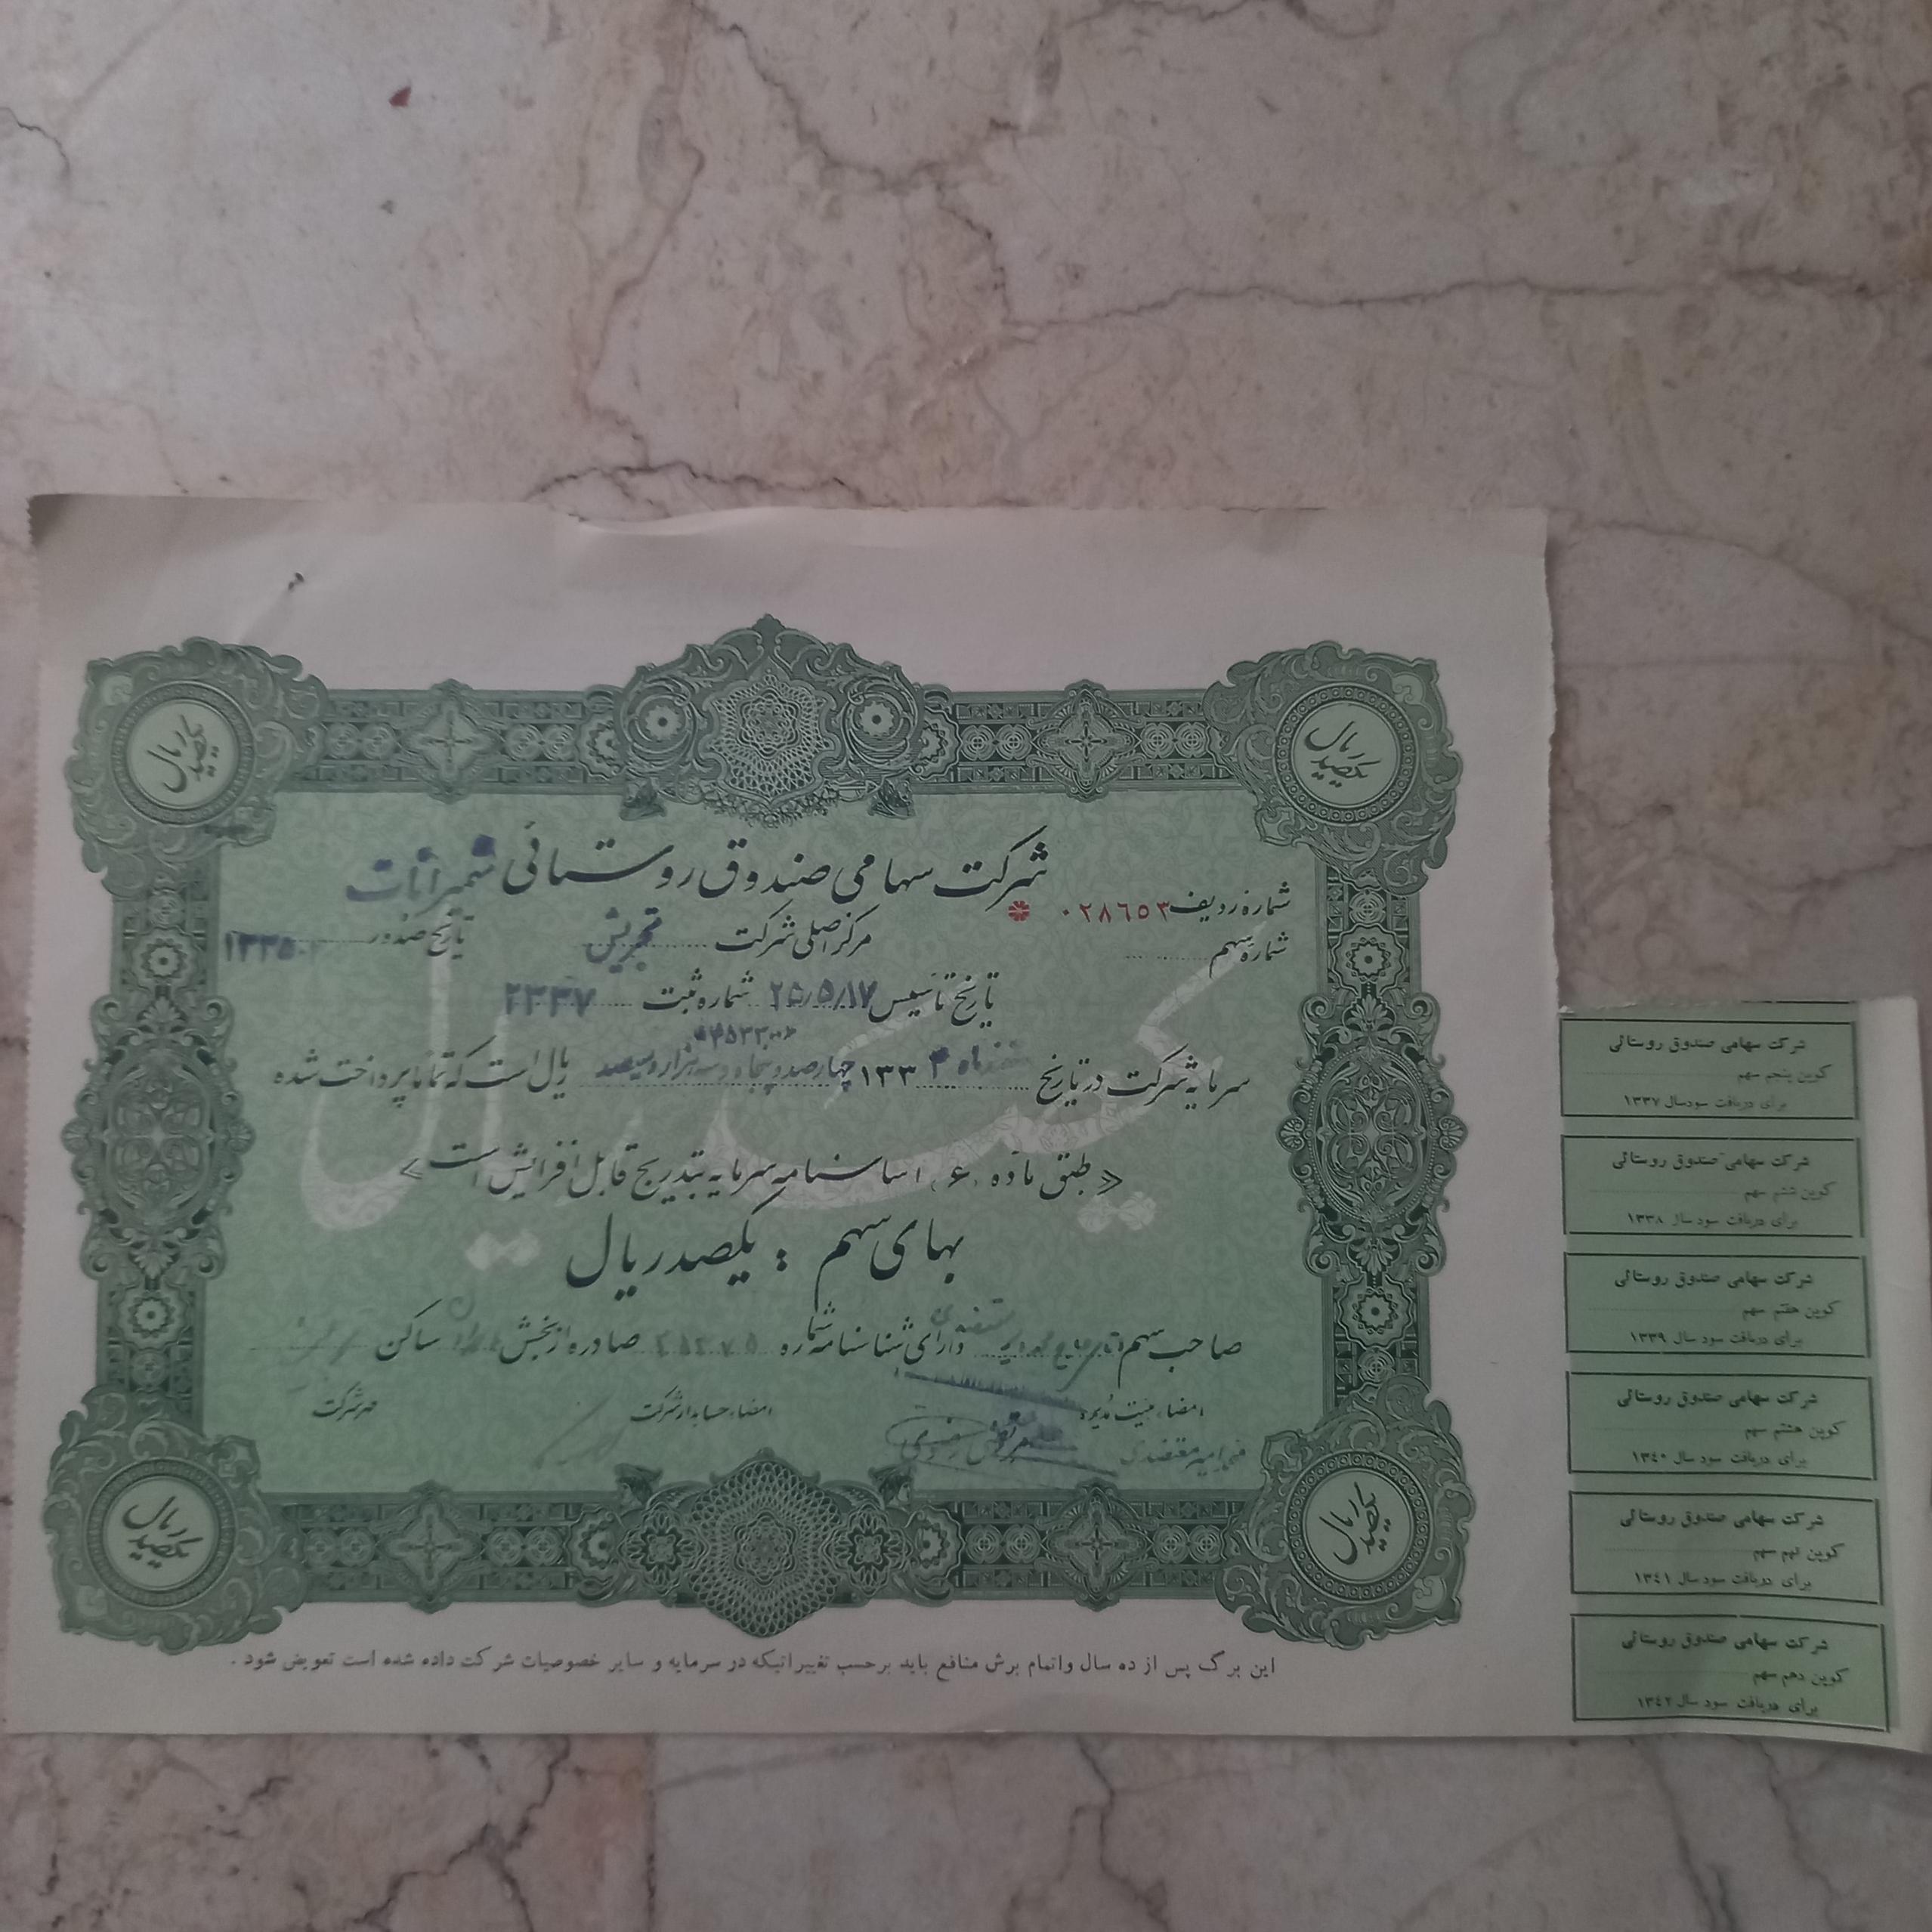 یکصد ریال
یکصد ریال
شرکت سهامی صندوق روستائی شمیرانات
شماره ردیف ۰۲۸٦٥۳
مرکز اصلی شرکت تجریش
تاریخ صدور
شماره سهم
تاریخ تأسیس ۲۵/۵/۱۷ شماره ثبت ۲۳۳۷
سرمایه شرکت در تاریخ ماه ۱۳۳۴ چهارصد و پنجاه و سه هزار و سیصد ریال است که تماماً پرداخت شده
یکصد ریال
«طبق ماده ۶ اساسنامه سرمایه بتدریج قابل افزایش است»
بهای سهم : یکصد ریال
صاحب سهم دارای شناسنامه شماره صادره از بخش ساکن
امضاء هیئت مدیره امضاء حسابدار شرکت مهر شرکت
یکصد ریال
یکصد ریال
این برگ پس از ده سال و اتمام برش منافع باید برحسب تغییراتیکه در سرمایه و سایر خصوصیات شرکت داده شده است تعویض شود .
شرکت سهامی صندوق روستائی
کوپن پنجم سهم
برای دریافت سود سال ۱۳۳۷
شرکت سهامی صندوق روستائی
کوپن ششم سهم
برای دریافت سود سال ۱۳۳۸
شرکت سهامی صندوق روستائی
کوپن هفتم سهم
برای دریافت سود سال ۱۳۳۹
شرکت سهامی صندوق روستائی
کوپن هشتم سهم
برای دریافت سود سال ۱۳٤۰
شرکت سهامی صندوق روستائی
کوپن نهم سهم
برای دریافت سود سال ۱۳٤۱
شرکت سهامی صندوق روستائی
کوپن دهم سهم
برای دریافت سود سال ۱۳٤۲